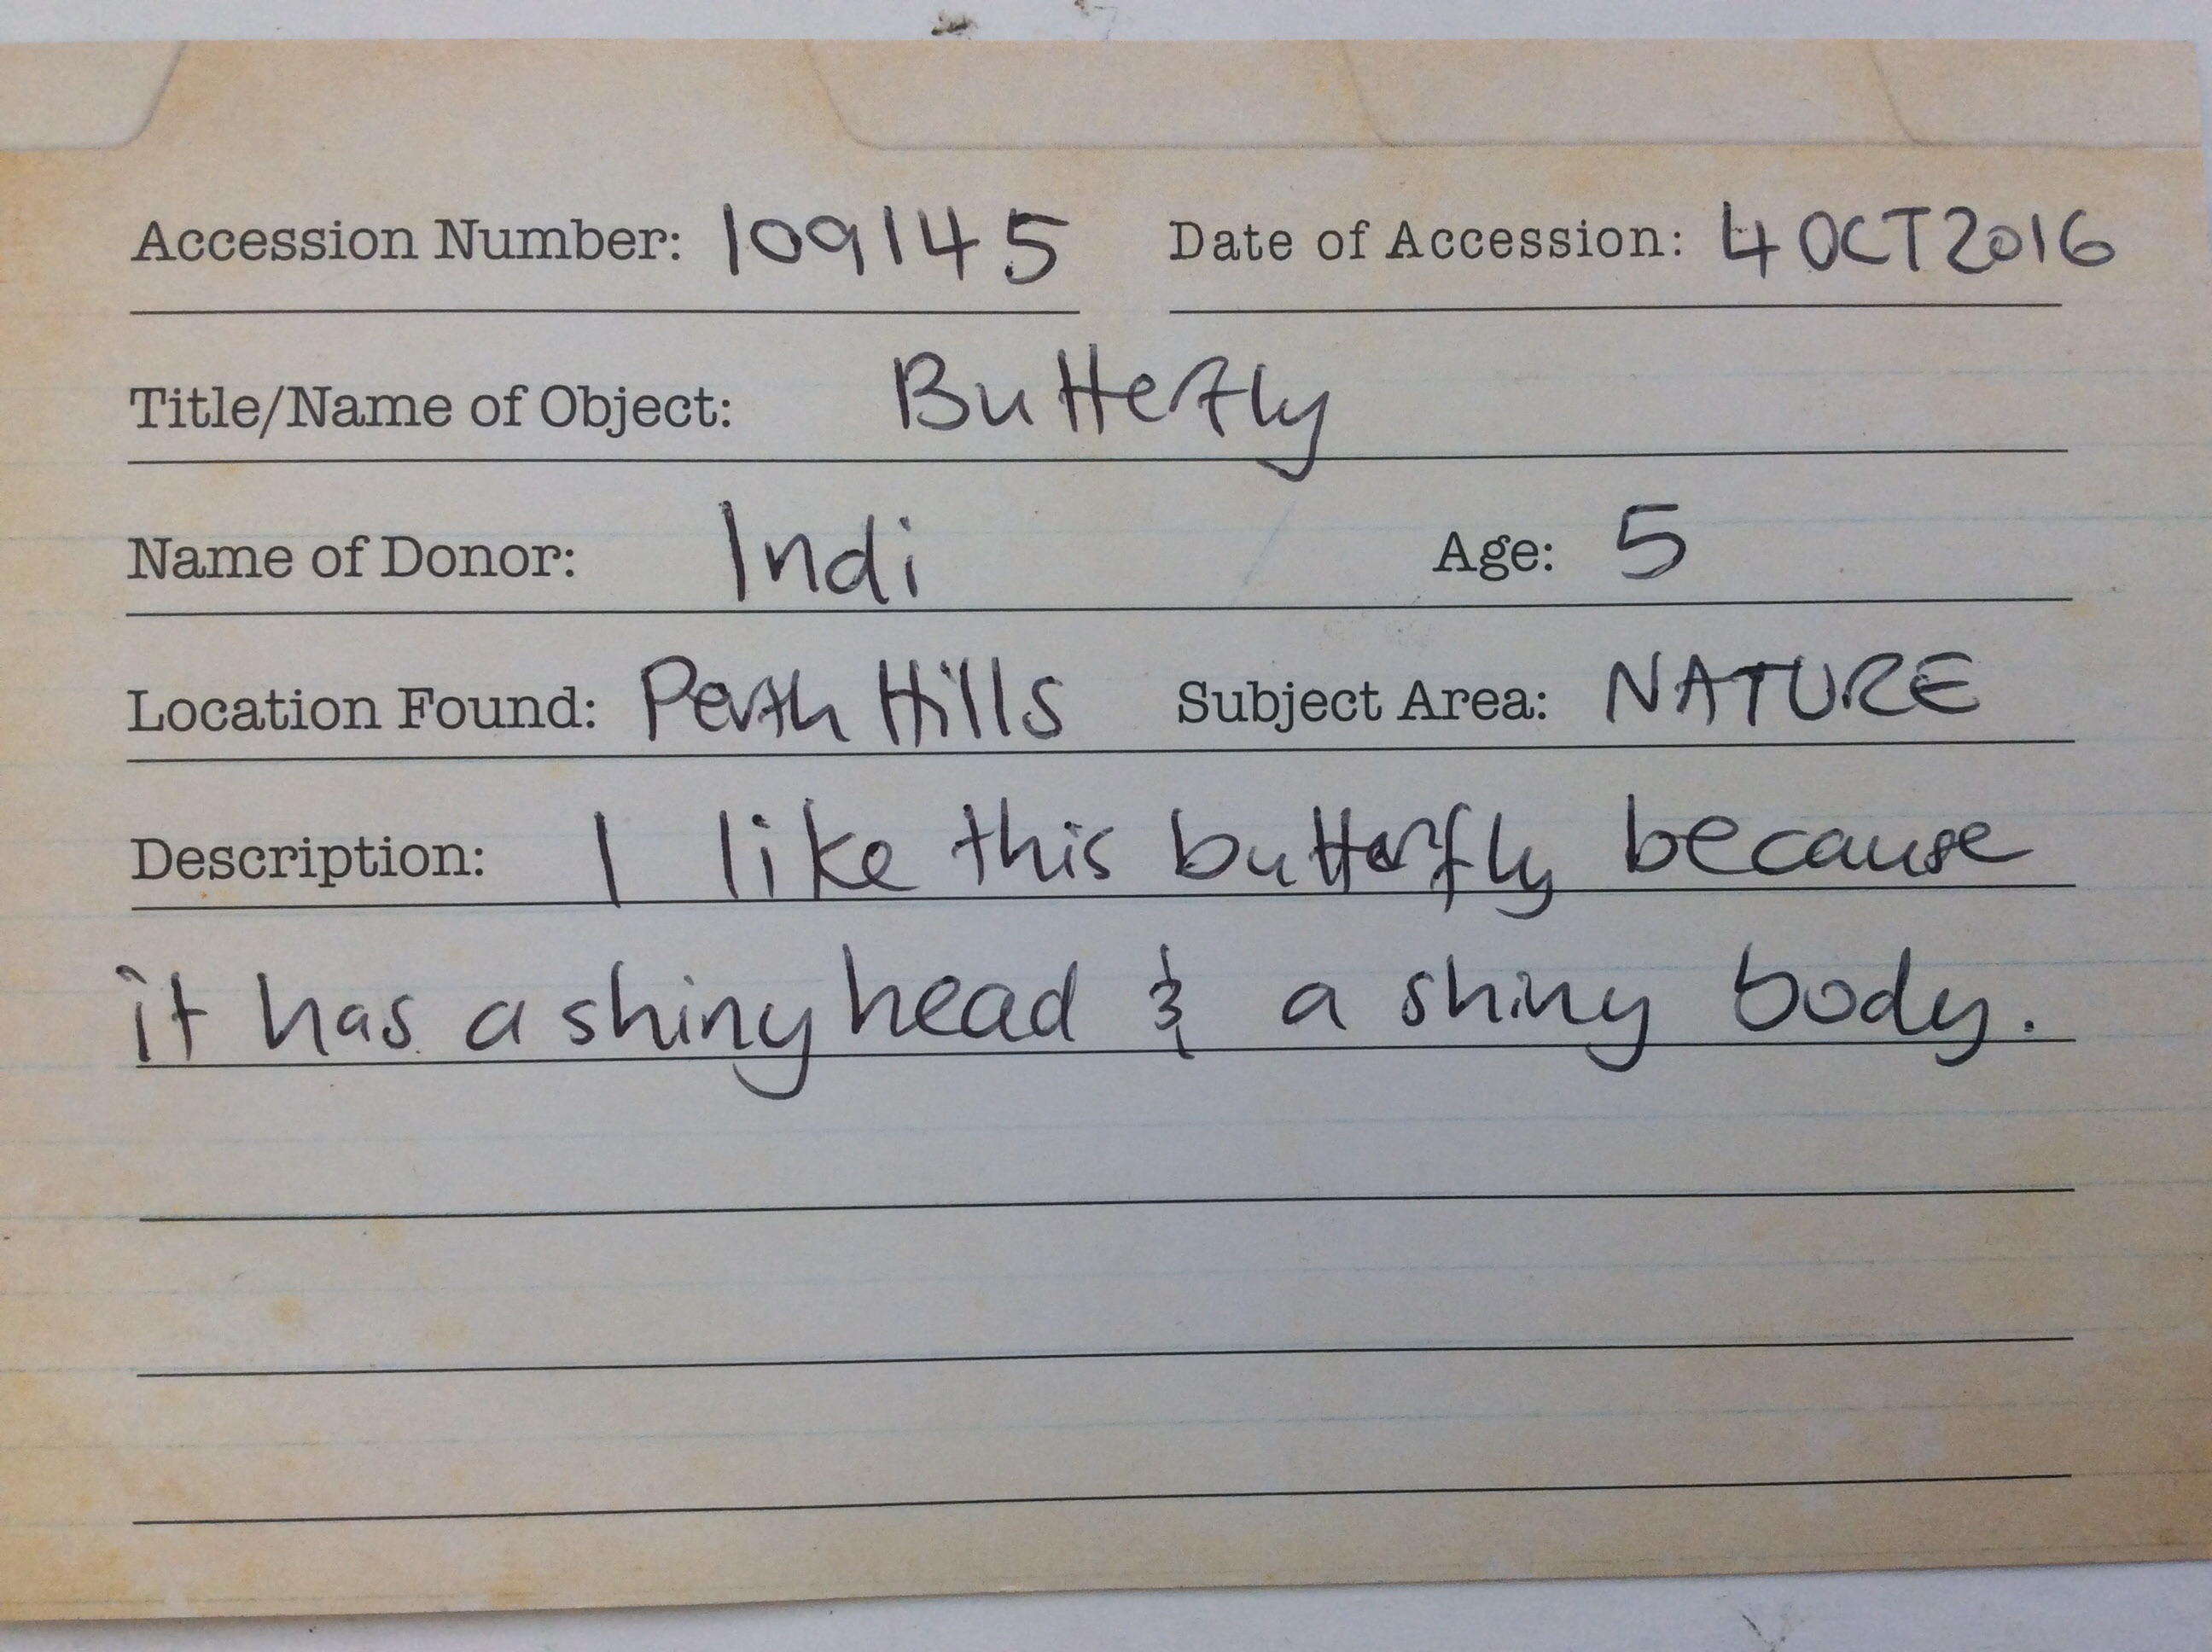 Accession Number: 109145 Date of Accession: 4 OCT 2016
Title/Name of Object: Butterfly
Name of Donor: Indi Age: 5
Location Found: Perth Hills Subject Area: NATURE
Description: I like this butterfly because
it has a shiny head & a shiny body.